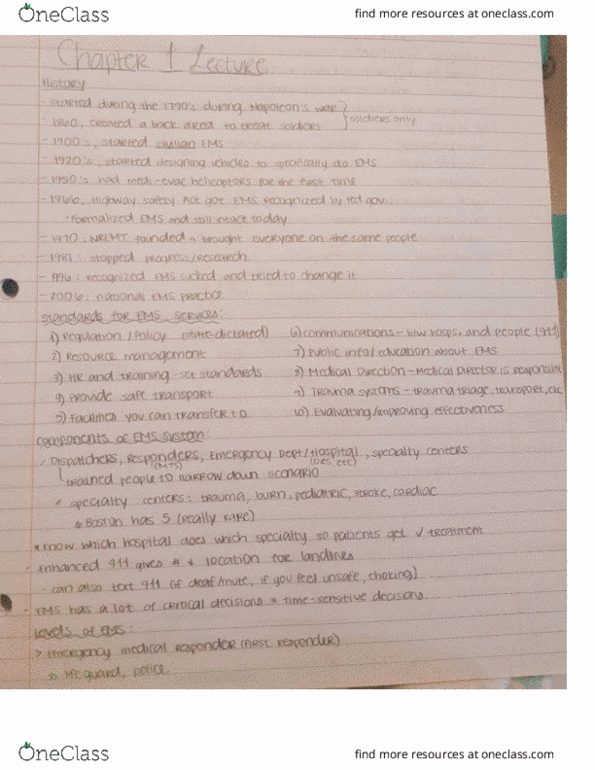 OneClass
find more resources at oneclass.com
Chapter 1 Lecture
History
- started during the 1790's during Napoleon's war
- 1860, created a back area to treat soldiers } soldiers only
- 1900's, started civilian EMS
- 1920's, started designing vehicles to specifically do EMS
- 1950's had medi-evac helicopters for the first time
- 1966, Highway safety Act got EMS recognized by fed gov.
• Formalized EMS and still intact today
- 1970: NREMT founded → brought everyone on the same people
- 1981: stopped progress/research
- 1996: recognized EMS sucked and tried to change it
- 2006: national EMS practice
Standards for EMS services:
1) Regulation/Policy (state-dictated)
2) Resource management
3) HR and Training - set standards
4) Provide safe transport
5) Facilities you can transfer to
6) communications - btw hosps. and people (911)
7) Public info/education about EMS
8) Medical Direction - Medical Director is responsible
9) Trauma systems - trauma triage, transport, etc
10) Evaluating/improving effectiveness
components of EMS system:
> Dispatchers, Responders, Emergency Dept/Hospital, specialty centers
(EMTs) (DRs etc)
trained people to narrow down scenario
specialty centers: trauma, burn, pediatric, stroke, cardiac
Boston has 5 (really rare)
* know which hospital does which specialty so patients get ✓ treatment
- Enhanced 911 gives # + location for landlines
- can also text 911 (if deaf/mute, if you feel unsafe, choking)
- EMS has a lot of critical decisions + time-sensitive decisions
Levels of EMS:
> Emergency medical responder (first responder)
lifeguard, police
OneClass
find more resources at oneclass.com